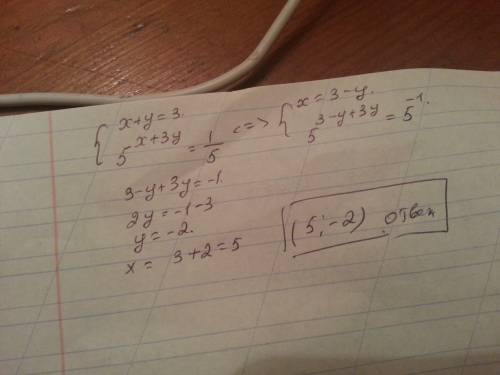 { x+y=3. <=> { x=3-y.
5^{x+3y} = 1/5   5^{3-y+3y} = 5^{-1}.
3-y+3y=-1.
2y=-1-3
y=-2.
x= 3+2=5
(5;-2) ответ